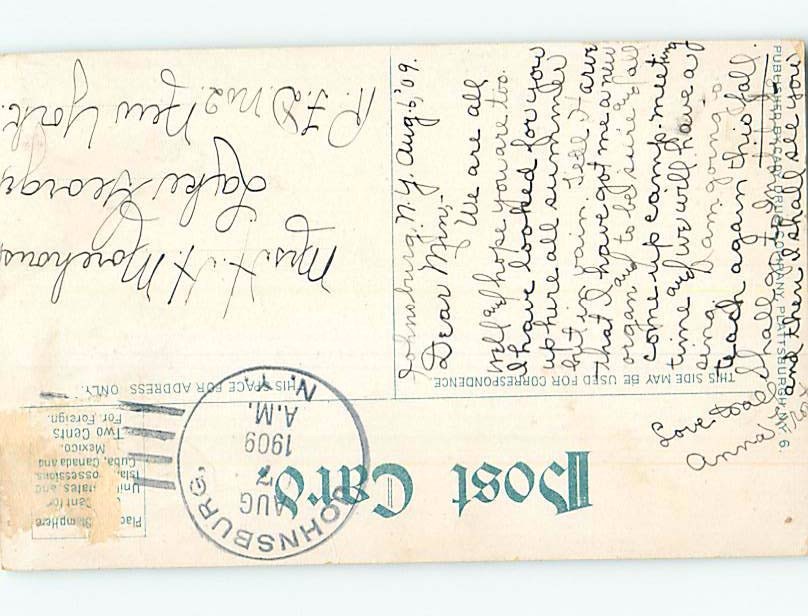 Post Card
THIS SIDE MAY BE USED FOR CORRESPONDENCE.
THIS SPACE FOR ADDRESS ONLY.
Place Stamp Here
One Cent for
United States and
Isla. Possessions,
Cuba, Canada and
Mexico.
Two Cents
For Foreign.
JOHNSBURG,
AUG
7
A.M.
1909
N.Y.
Johnsburg, N.Y. Aug. 6, '09.
Dear Minn,-
We are all
well & hope you are too.
I have looked for you
up here all summer
but in vain. Tell Harve
that I have got me a new
organ and to be sure and all
come up camp-meeting
time and we will have a
sing. I am going to
teach again this fall.
I shall go to
and then I shall see you
Love to all
Anna
Mrs. H. H. Morehouse
Lake George
New York.
R.F.D. No 2.
PUBLISHED BY CADY DRUG COMPANY, PLATTSBURGH, N.Y. 6.